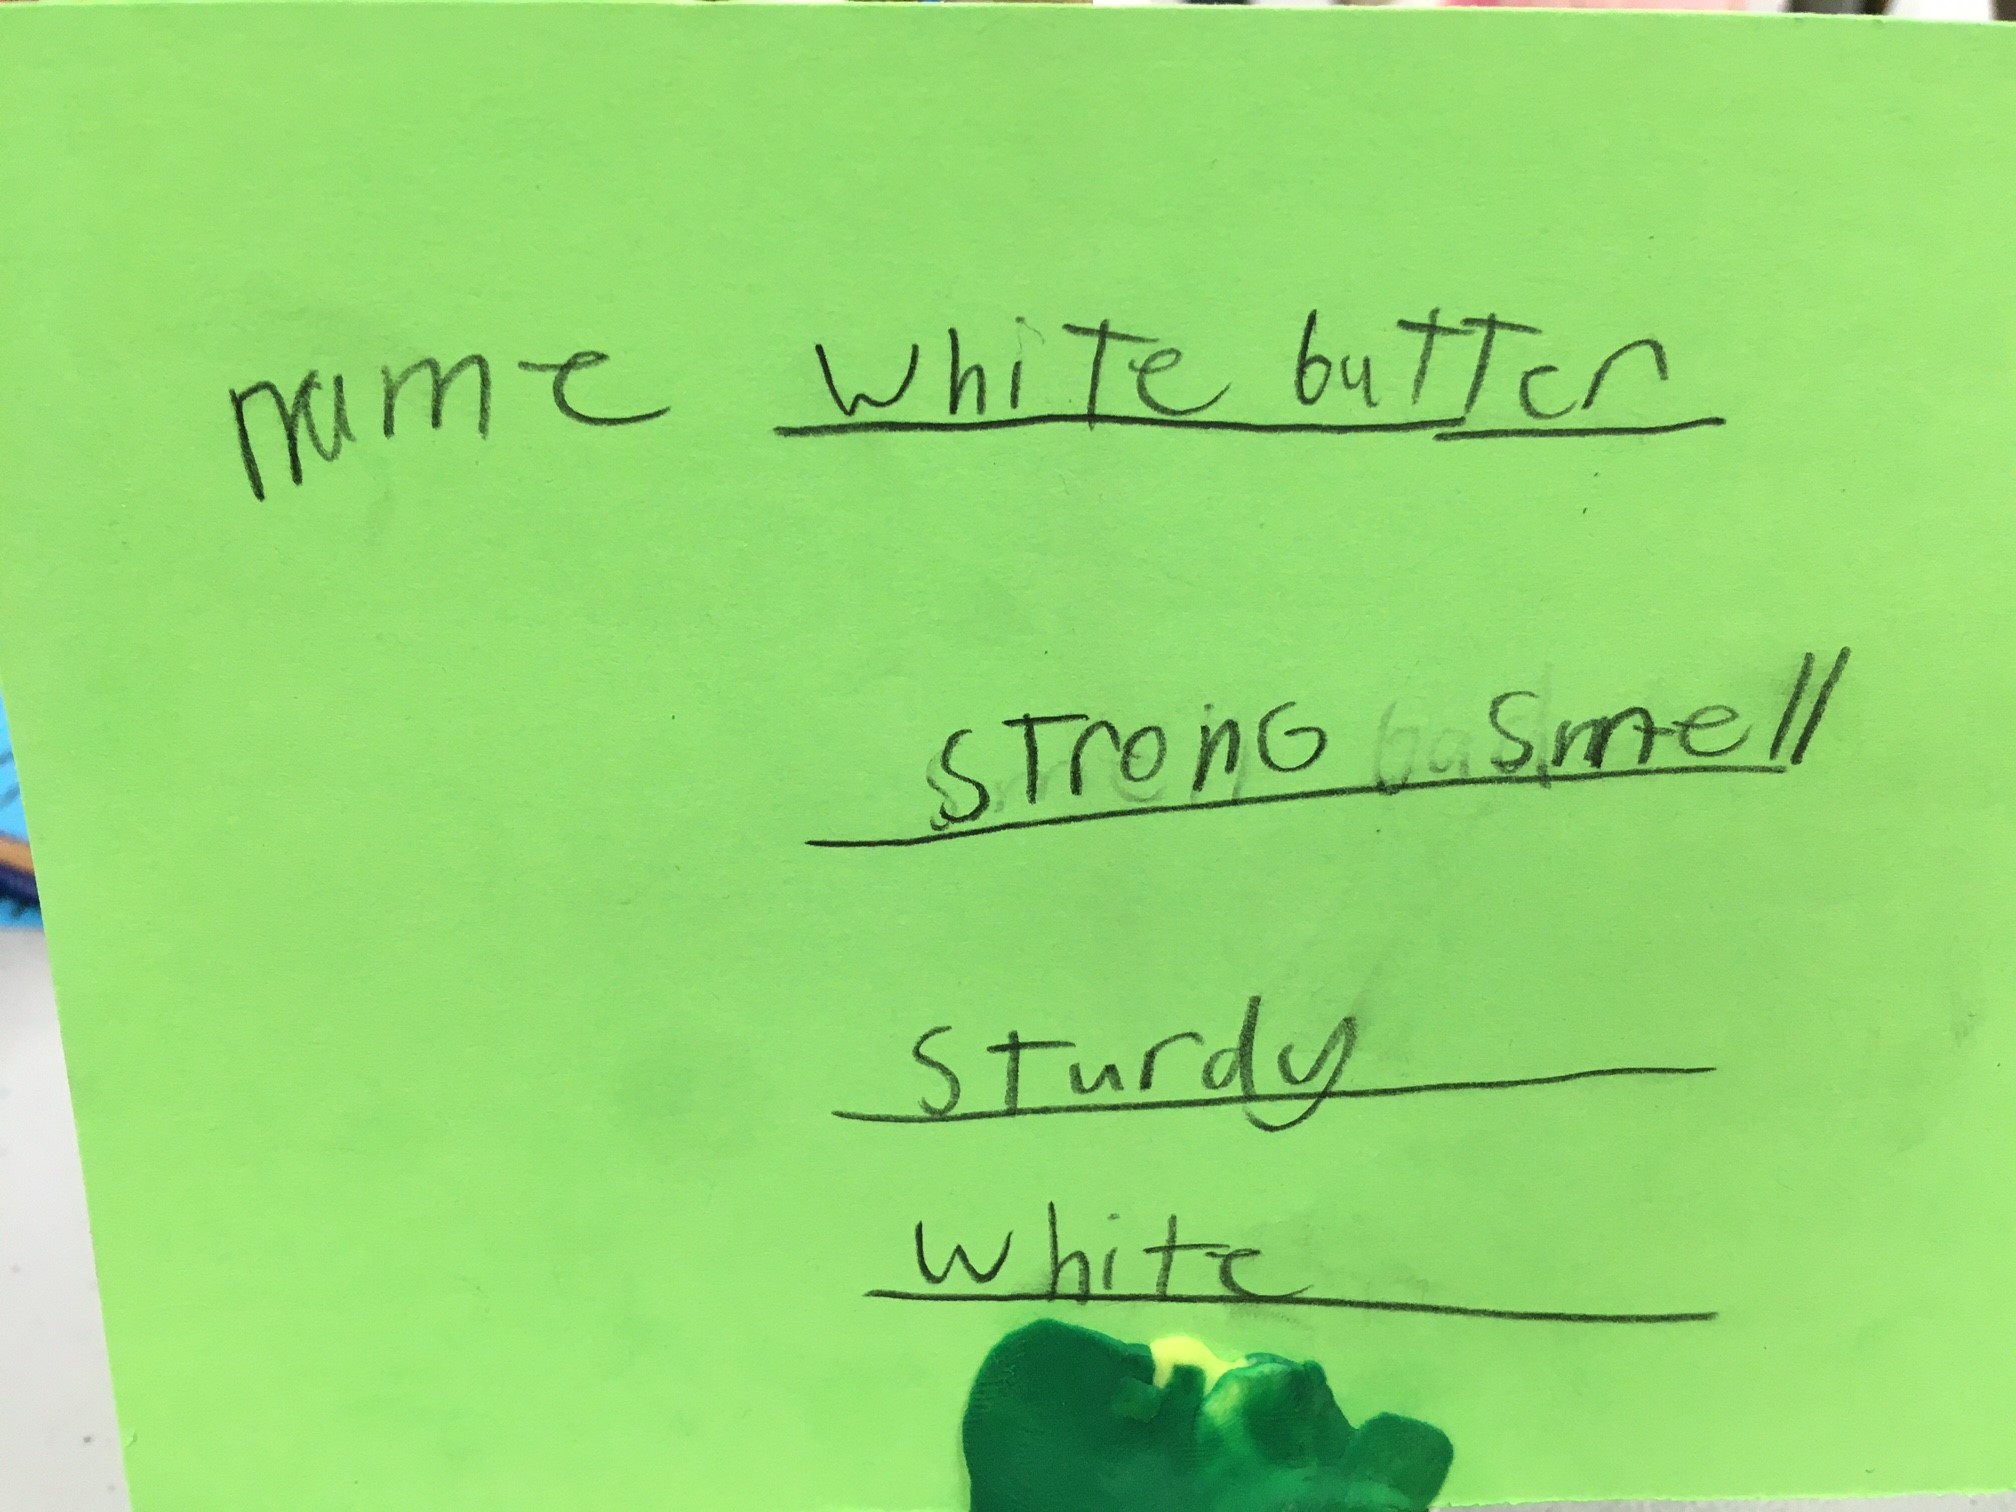 name white butter
strong smell
sturdy
white